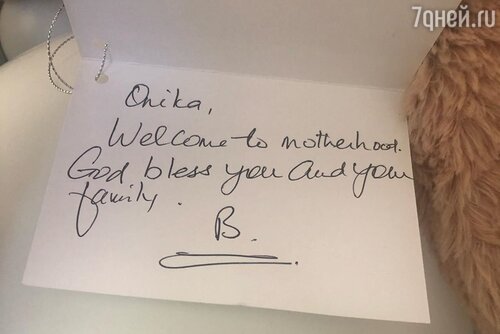 7дней.ru
Onika,
Welcome to motherhood.
God bless you and your
family.
B.